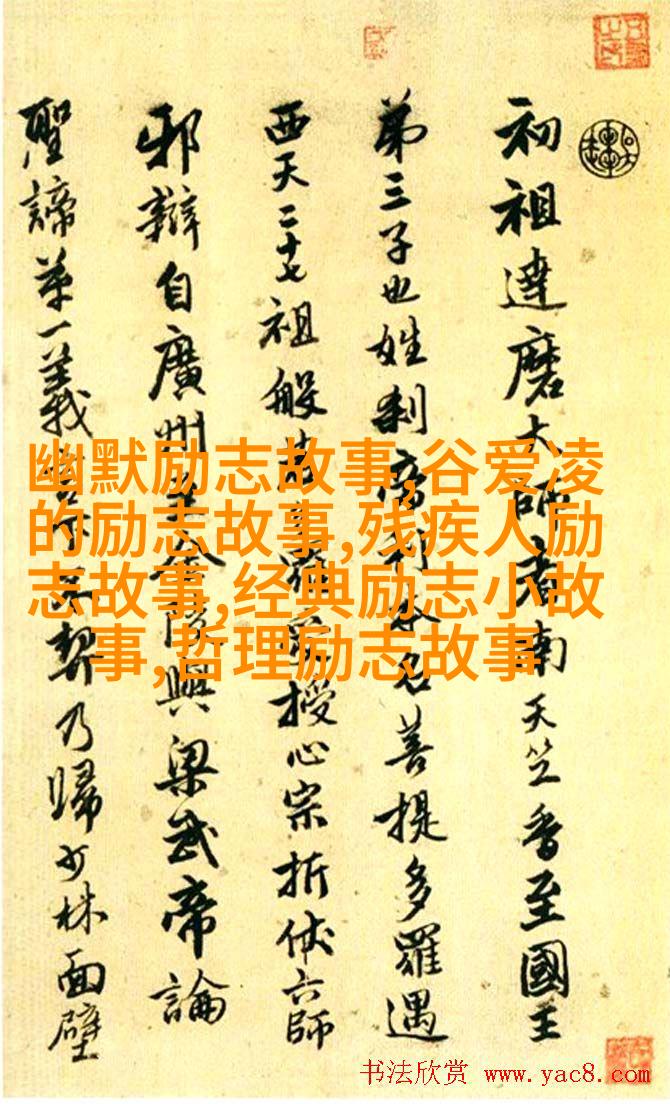 初祖達磨大師者南天竺香至國王
弟三子也姓刹帝利本名菩提多羅遇
西天二十七祖般若多羅授心宗折伏六師
邪辯自廣州至金陵與梁武帝論
聖諦第一義不契乃歸少林面壁
幽默励志故事,谷爱凌
的励志故事,残疾人励
志故事,经典励志小故
事,哲理励志故事
书法欣赏 www.yac8.com